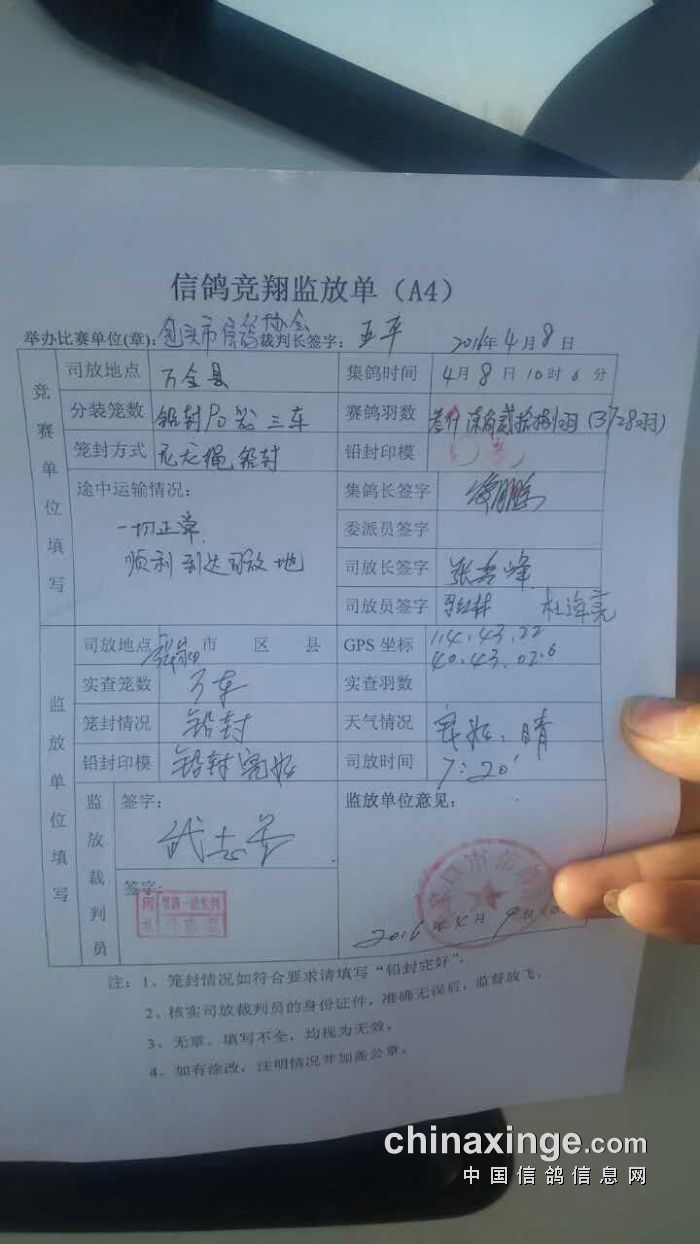 信鸽竞翔监放单（A4）
举办比赛单位(章): 包头市信鸽协会 裁判长签字: 2016年4月8日
竞赛单位填写
司放地点 万全县 集鸽时间 4月8日10时6分
分装笼数 铅封 三车 赛鸽羽数 (3728羽)
笼封方式 尼龙绳铅封 铅封印模
途中运输情况: 集鸽长签字
一切正常 委派员签字
顺利到达司放地 司放长签字
司放员签字 杜海亮
监放单位填写
司放地点 市 区 县 GPS 坐标 114.43.22
40.43.02.6
实查笼数 车 实查羽数
笼封情况 铅封 天气情况 晴
铅封印模 铅封完好 司放时间 7:20'
监放裁判员
签字: 监放单位意见:
签字:
2016年4月9日
注: 1、笼封情况如符合要求请填写“铅封完好”。
2、核实司放裁判员的身份证件，准确无误后，监督放飞。
3、无章、填写不全，均视为无效。
4、如有涂改，注明情况并加盖公章。
chinaxinge.com
中国信鸽信息网